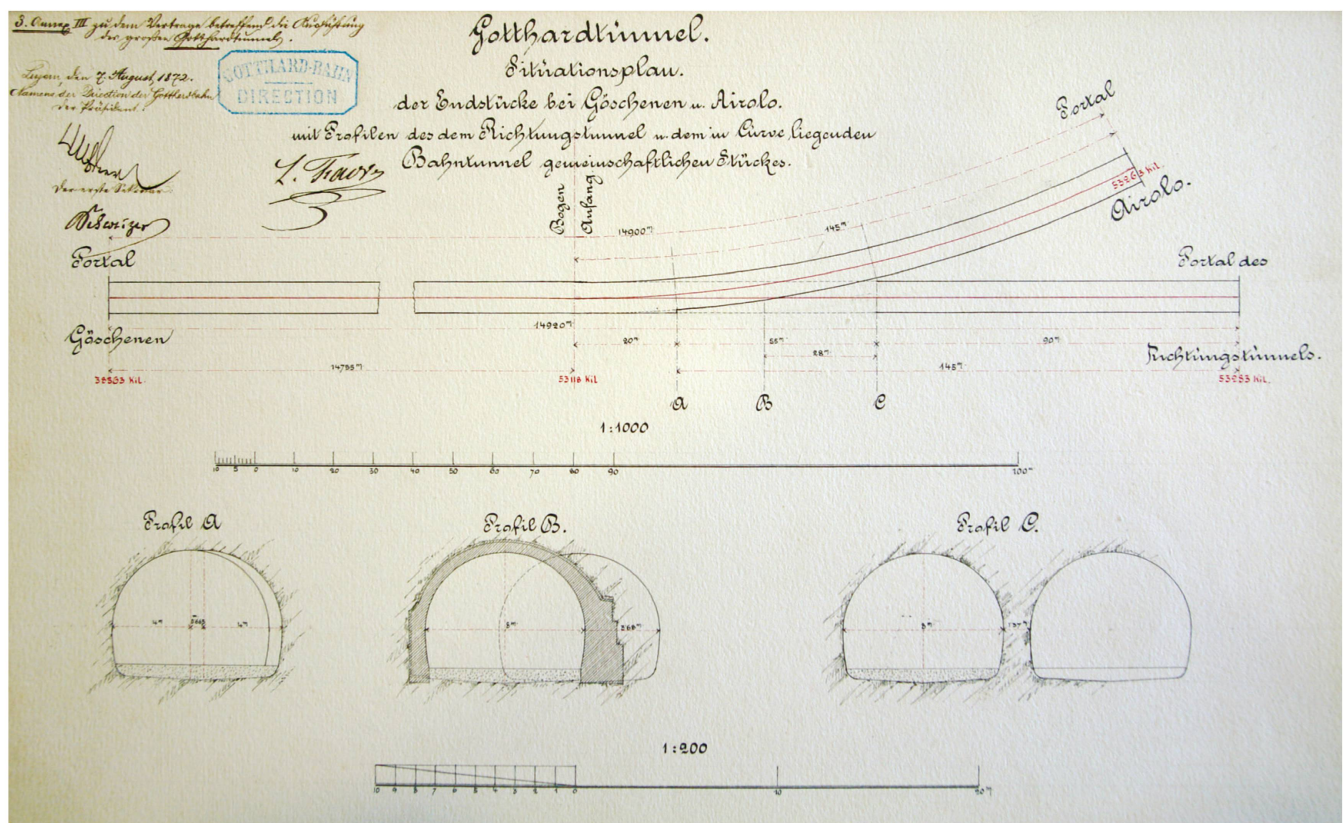 3. Annex III zu dem Vertrage betreffend die Ausführung
des grossen Gotthardtunnels.
Luzern, den 7. August, 1872.
Namens der Direction der Gotthardbahn
Der Präsident:
GOTTHARD-BAHN
DIRECTION
Der erste Sekretär
Schweizer
L. Favre
Gotthardtunnel.
Situationsplan.
der Endstücke bei Göschenen u. Airolo.
mit Profilen des dem Richtungstunnel u. dem in Curve liegenden
Bahntunnel gemeinschaftlichen Stückes.
Portal
Airolo.
53263 Kil.
Bogen
Anfang
14900m
145m
Portal
Göschenen
Portal des
Richtungstunnels.
14920m
20m
55m
90m
28m
14755m
145m
38363 Kil.
53118 Kil
53253 Kil.
A
B
C
1:1000
10 5 0 10 20 30 40 50 60 70 80 90 200m
Profil A
Profil B.
Profil C.
4m
4m
8m
2.68m
8m
1:200
10 9 8 7 6 5 4 3 2 1 0 10 20m